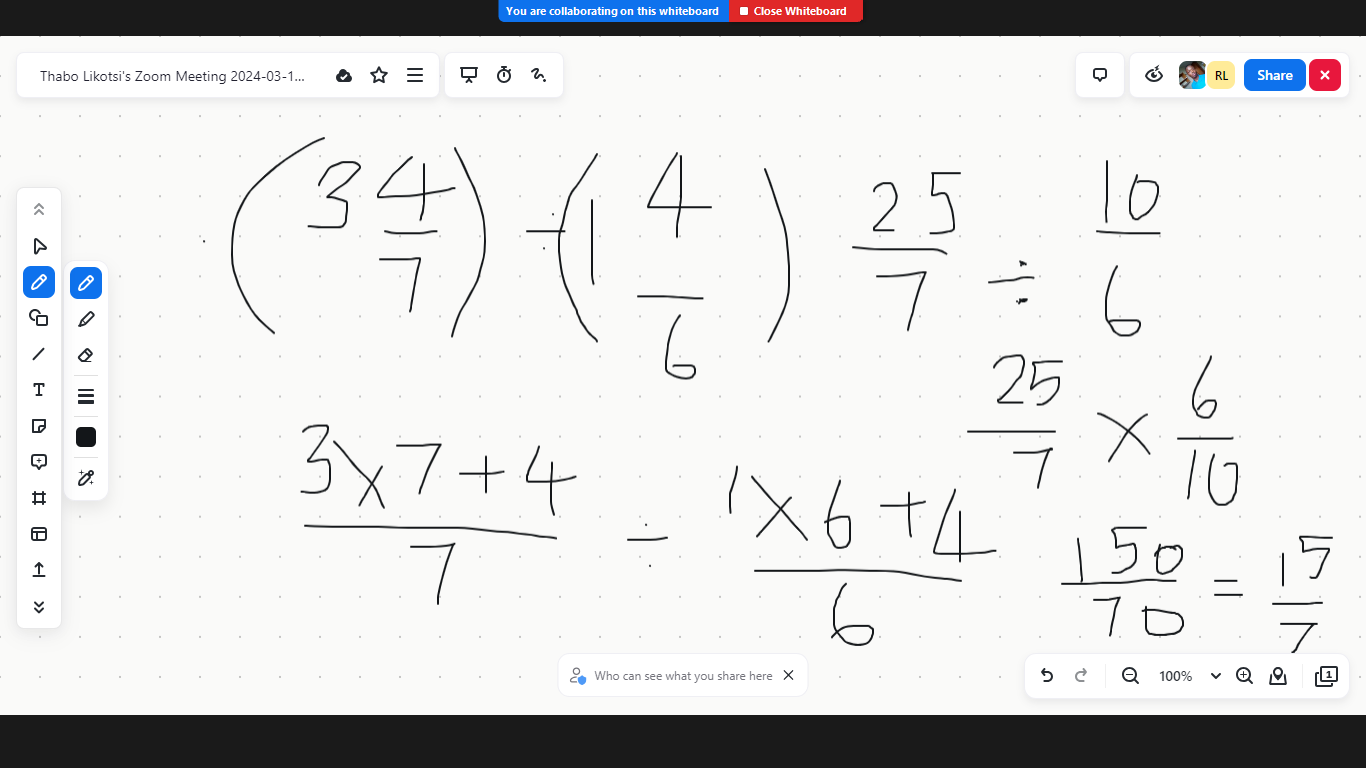 You are collaborating on this whiteboard Close Whiteboard
Thabo Likotsi's Zoom Meeting 2024-03-1...
RL Share
(3 4/7) ÷ (1 4/6)
25/7 ÷ 10/6
25/7 × 6/10
(3 × 7 + 4)/7 ÷ (1 × 6 + 4)/6
150/70 = 15/7
Who can see what you share here
100%
1